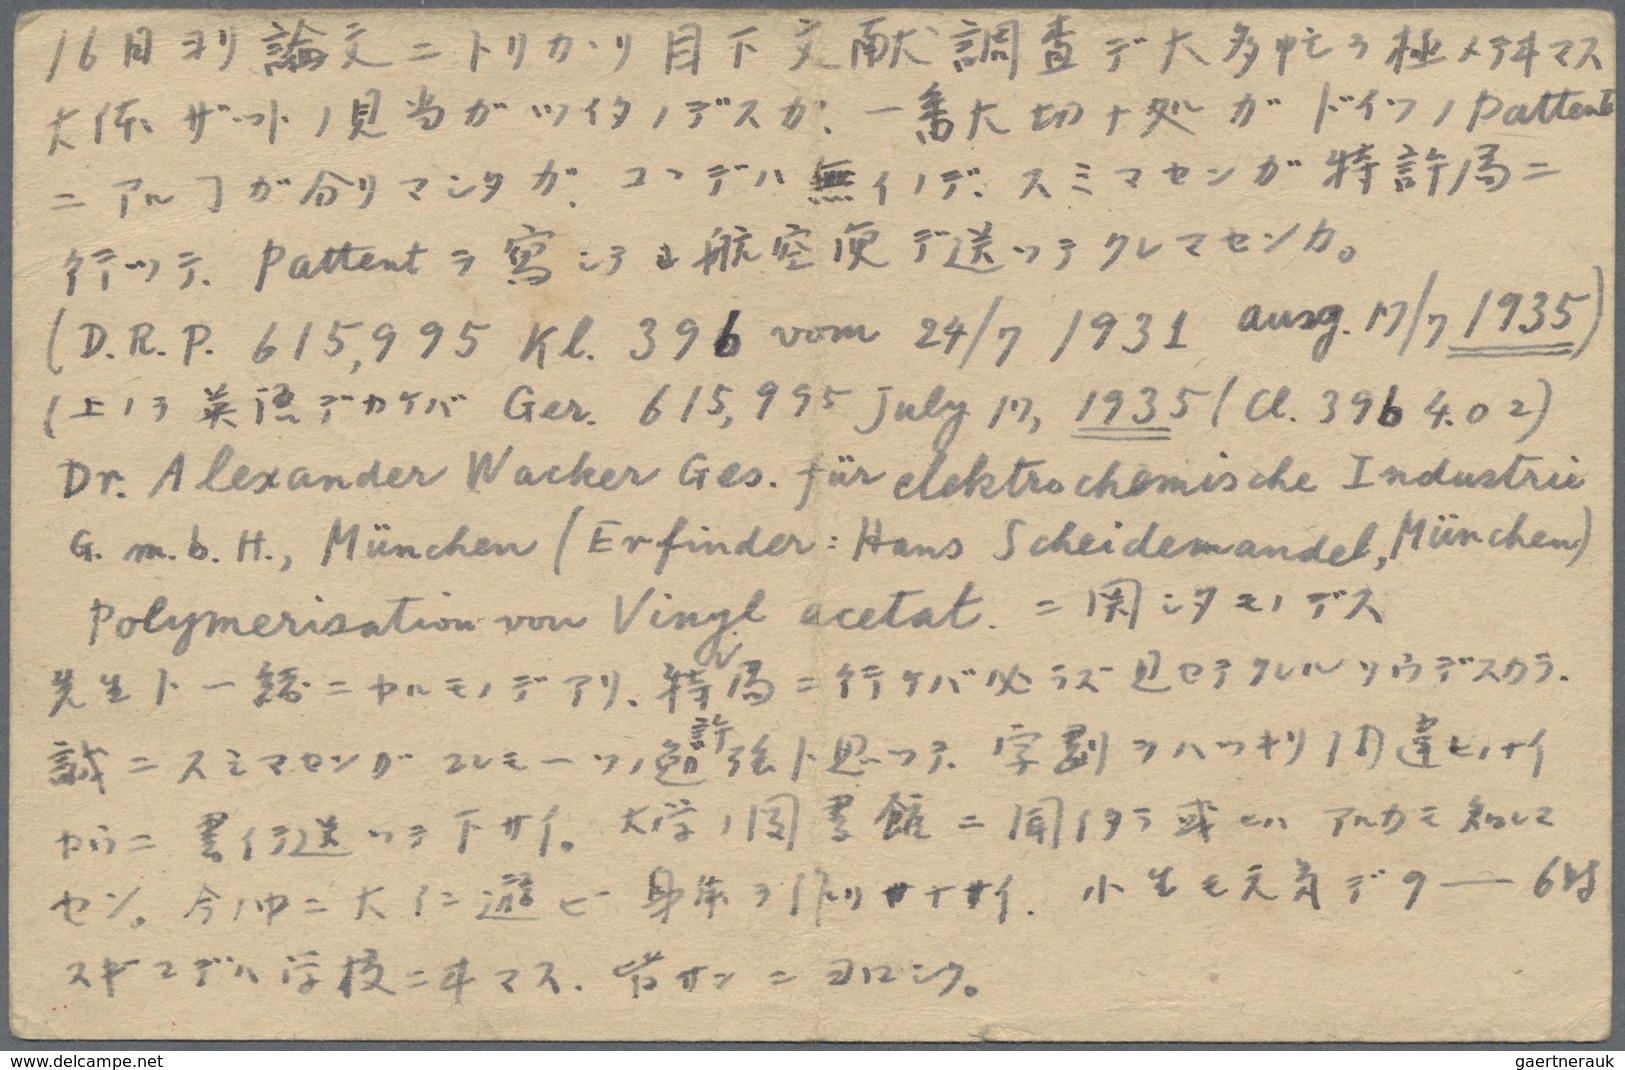 16日ヨリ論文ニトリカヽリ目下文献調査デ大多忙ヲ極メテヰマス
大体ザットノ見当ガツイタノデスガ、一番大切ナ処ガドイツノPattent
ニアルコガ分リマシタガ、コヽデハ無イノデ、スミマセンガ特許局ニ
行ッテ、Pattentヲ寫シテ航空便デ送ッテクレマセンカ。
(D.R.P. 615,995 Kl. 39b vom 24/7 1931 ausg. 17/7 1935)
(上ノヲ英語デカケバ Ger. 615,995 July 17, 1935 (Cl. 39b 4.02)
Dr. Alexander Wacker Ges. für elektrochemische Industrie
G.m.b.H., München (Erfinder: Hans Scheidemandel, München)
Polymerisation von Vinyl acetat. ニ関シタモノデス
先生ト一緒ニヤルモノデアリ、特許局ニ行ケバ必ラズ見セテクレルソウデスカラ、
誠ニスミマセンガコレモ一ツノ勉強ト思ッテ、字劃ヲハッキリ間違ヒナイ
ヤウニ書イテ送ッテ下サイ。大学ノ図書館ニ聞イタラ或ヒハアルカモ知レマ
セン。今ノ中ニ大イニ遊ビ身体ヲ作リナサイ. 小生モ元気デ9—6時
スギマデハ学校ニヰマス. 皆サンニヨロシク。
www.delcampe.net
gaertnerauk